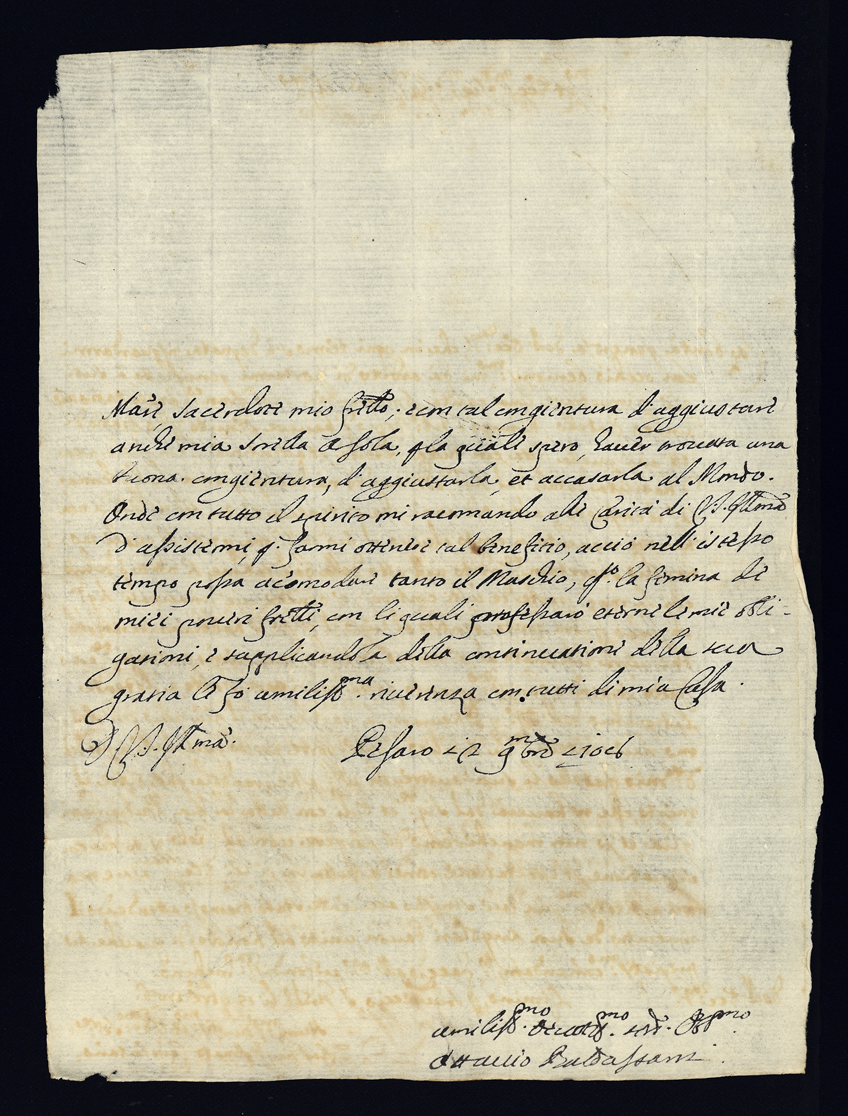 Mare Sacerdote mio frello; e con tal congientura d'aggiustare
anche mia Sorella che sola, p la quale spero, hauer trouata una
buona congientura, d'aggiustarla, et accasarla al Mondo.
Onde con tutto il spirito mi racomando alla Carità di V.S. Illma
d'assistermi, p. farmi ottenere tal beneficio, acciò nell'istesso
tempo possa acomodare tanto il Maschio, q.to la femina de
miei poueri frelli, con li quali professarò eterne le mie obli-
gationi, e supplicandola della continuatione della sua
gratia Le fò umiliss.ma riuerenza con tutti di mia Casa.
D V.S. Illma. Pesaro 12 9mbre 1706
umiliss.mo deuotiss.mo ser. Obl.mo
Ottauio Baldassarri